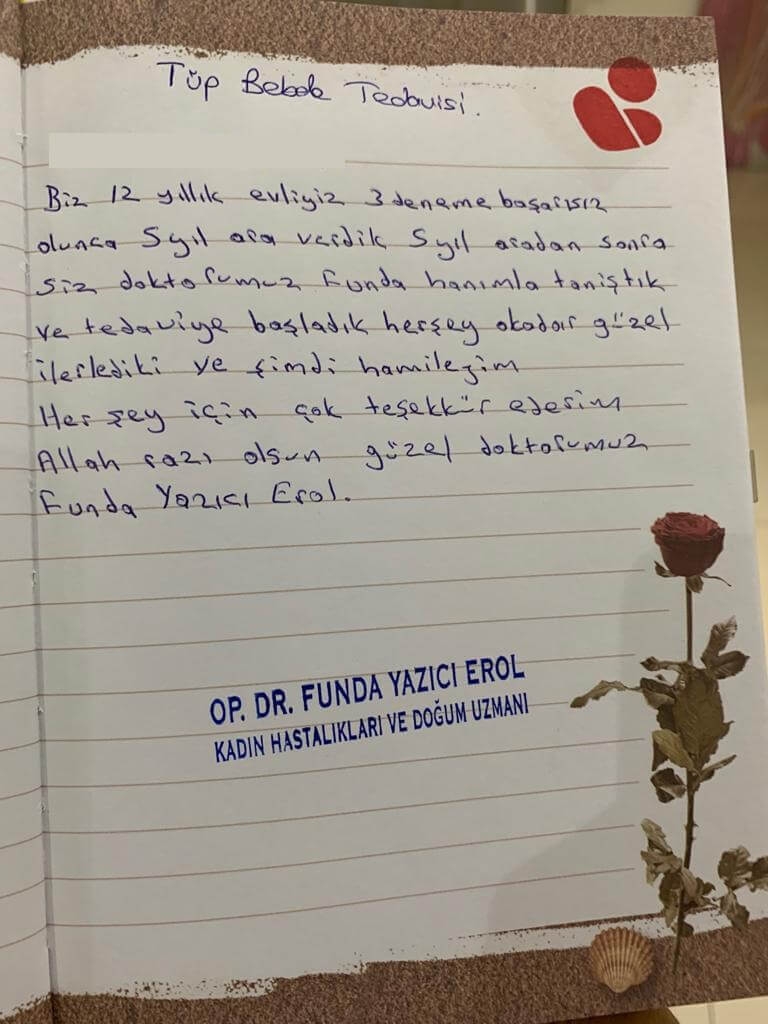 Tüp Bebek Tedavisi.
Biz 12 yıllık evliyiz 3 deneme başarısız
olunca 5 yıl ara verdik 5 yıl aradan sonra
siz doktorumuz Funda hanımla tanıştık
ve tedaviye başladık herşey okadar güzel
ilerlediki ve şimdi hamileyim
Her şey için çok teşekkür ederim
Allah razı olsun güzel doktorumuz
Funda Yazıcı Erol.
OP. DR. FUNDA YAZICI EROL
KADIN HASTALIKLARI VE DOĞUM UZMANI